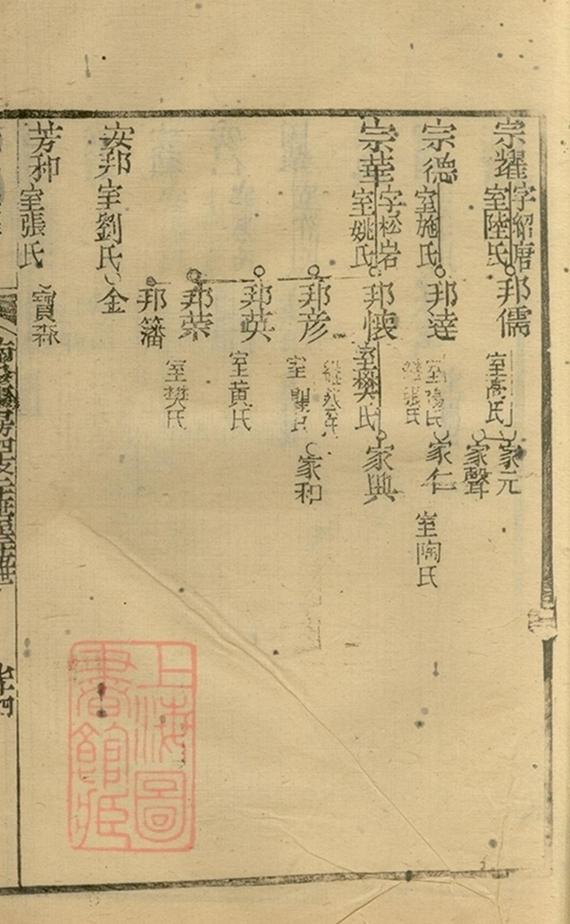 宗耀 字紹唐 室陸氏 邦儒 室高氏 家元
家聲
宗德 室施氏 邦達 室陽氏 繼張氏 家仁 室陶氏
宗華 字松岩 室姚氏 邦懷 室樊氏 家興
邦彦 室 氏 氏 家和
邦英 室黃氏
邦榮 室樊氏
邦籓
安邦 室劉氏 金
芳和 室張氏 寶森
上海圖
書館藏